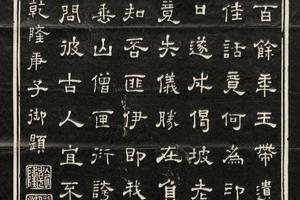 百餘年玉帶遺
佳話竟何為印
口遂成偈坡老
竟失儀勝在負
知否匪伊即我
垂山僧匣衍誇
問彼古人宜不
乾隆庚子御題